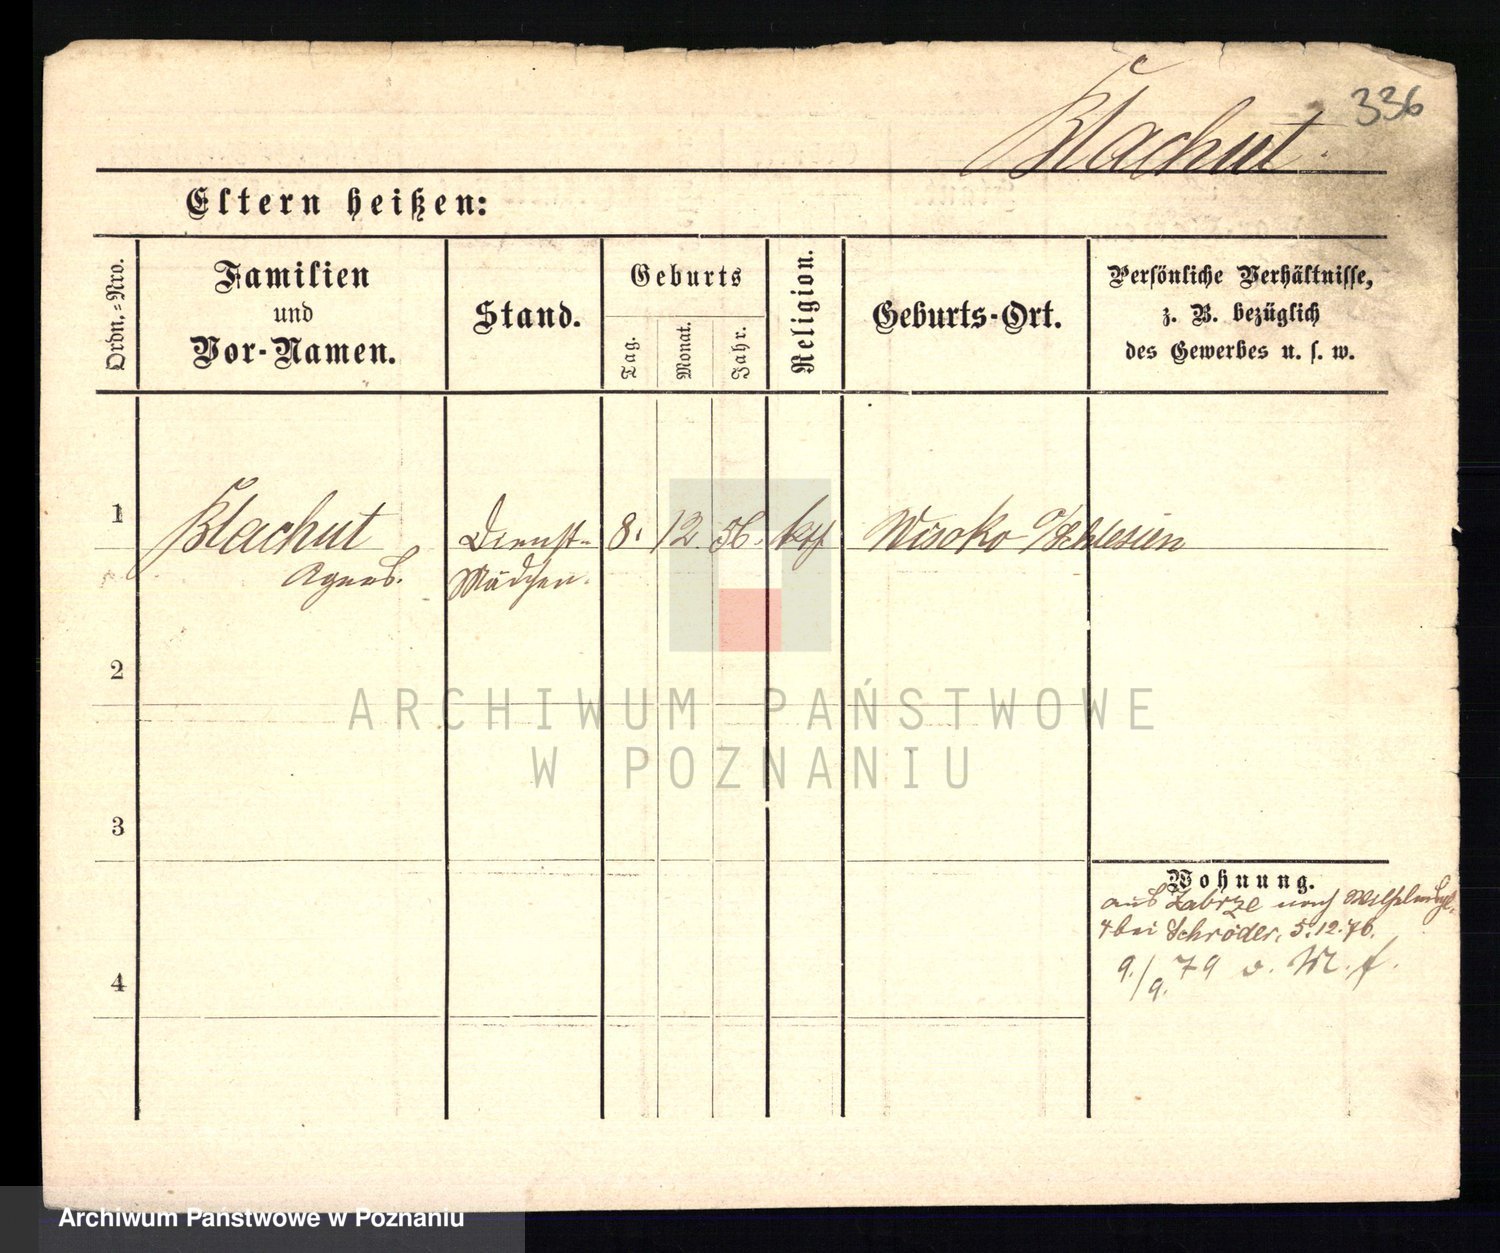 336
Blachut.
Eltern heißen:
Ordn.=Nro.
Familien
und
Vor-Namen.
Stand.
Geburts
Tag.
Monat.
Jahr.
Religion.
Geburts-Ort.
Persönliche Verhältnisse,
z. B. bezüglich
des Gewerbes u. s. w.
1
Blachut
Agnes.
Dienst-
Mädchen.
8. 12. 56. kth
Wisoko O/Schlesien
2
3
4
Wohnung.
aus Zabrze nach Wilhelmspl.
4 bei Schröder, 5.12.76.
9./9. 79 v. M. f.
ARCHIWUM PAŃSTWOWE
W POZNANIU
Archiwum Państwowe w Poznaniu